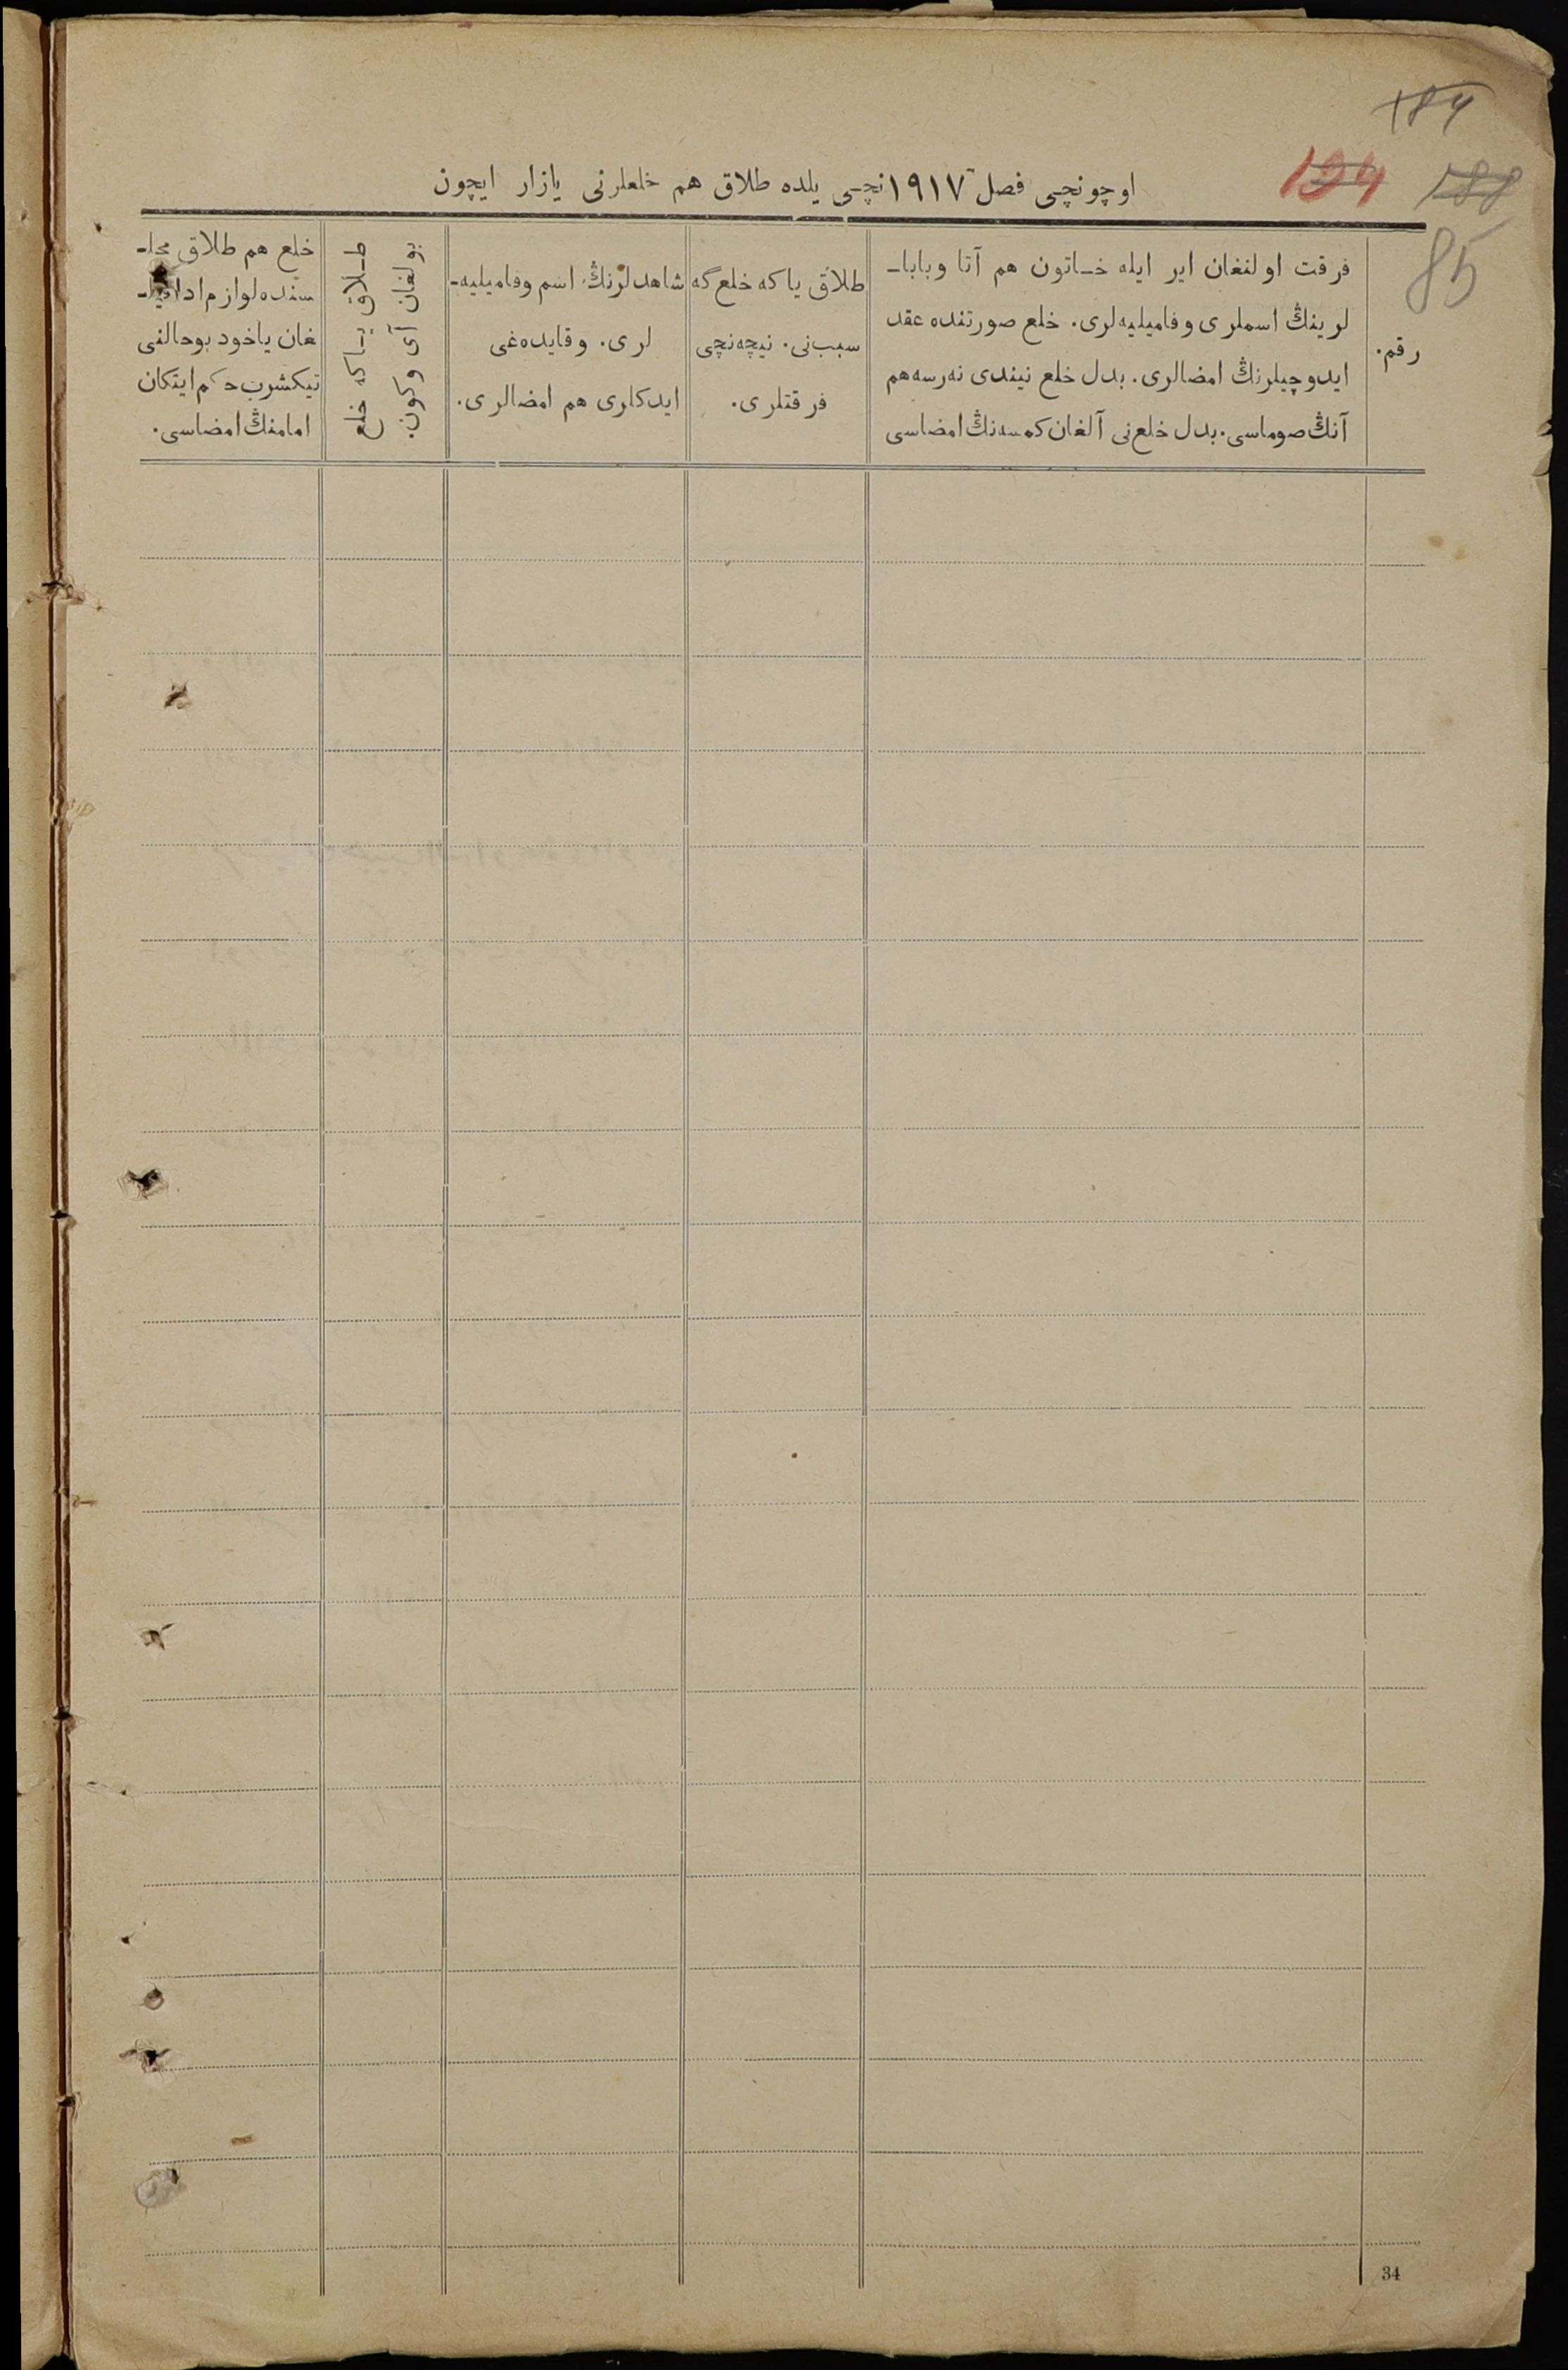 184
194
188
85
اوچونچی فصل ١٩١٧نچی یلده طلاق هم خلعلرنی یازار ایچون
رقم.
فرقت اولنغان ایر ایله خـاتون هم آتا وبابا-
لرینڭ اسملری وفامیلیه‌لری. خلع صورتنده عقد
ایدوچیلرنڭ امضالری. بدل خلع نیندی نه‌رسه هم
آنڭ صوماسی. بدل خلع نی آلغان کمسه‌نڭ امضاسی
طلاق یا که خلع گه
سبب نی. نیچه‌نچی
فرقتلری.
شاهدلرنڭ اسم وفامیلیه-
لری. وقایده‌غی
ایدکلری هم امضالری.
طـلاق یـاکه خلع
بولغان آی وکون.
خلع هم طلاق مجلـ
سنده لوازم ادا
غان یاخود بوحالنی
تیکشرب حکم ایتکان
امامنڭ امضاسی.
34